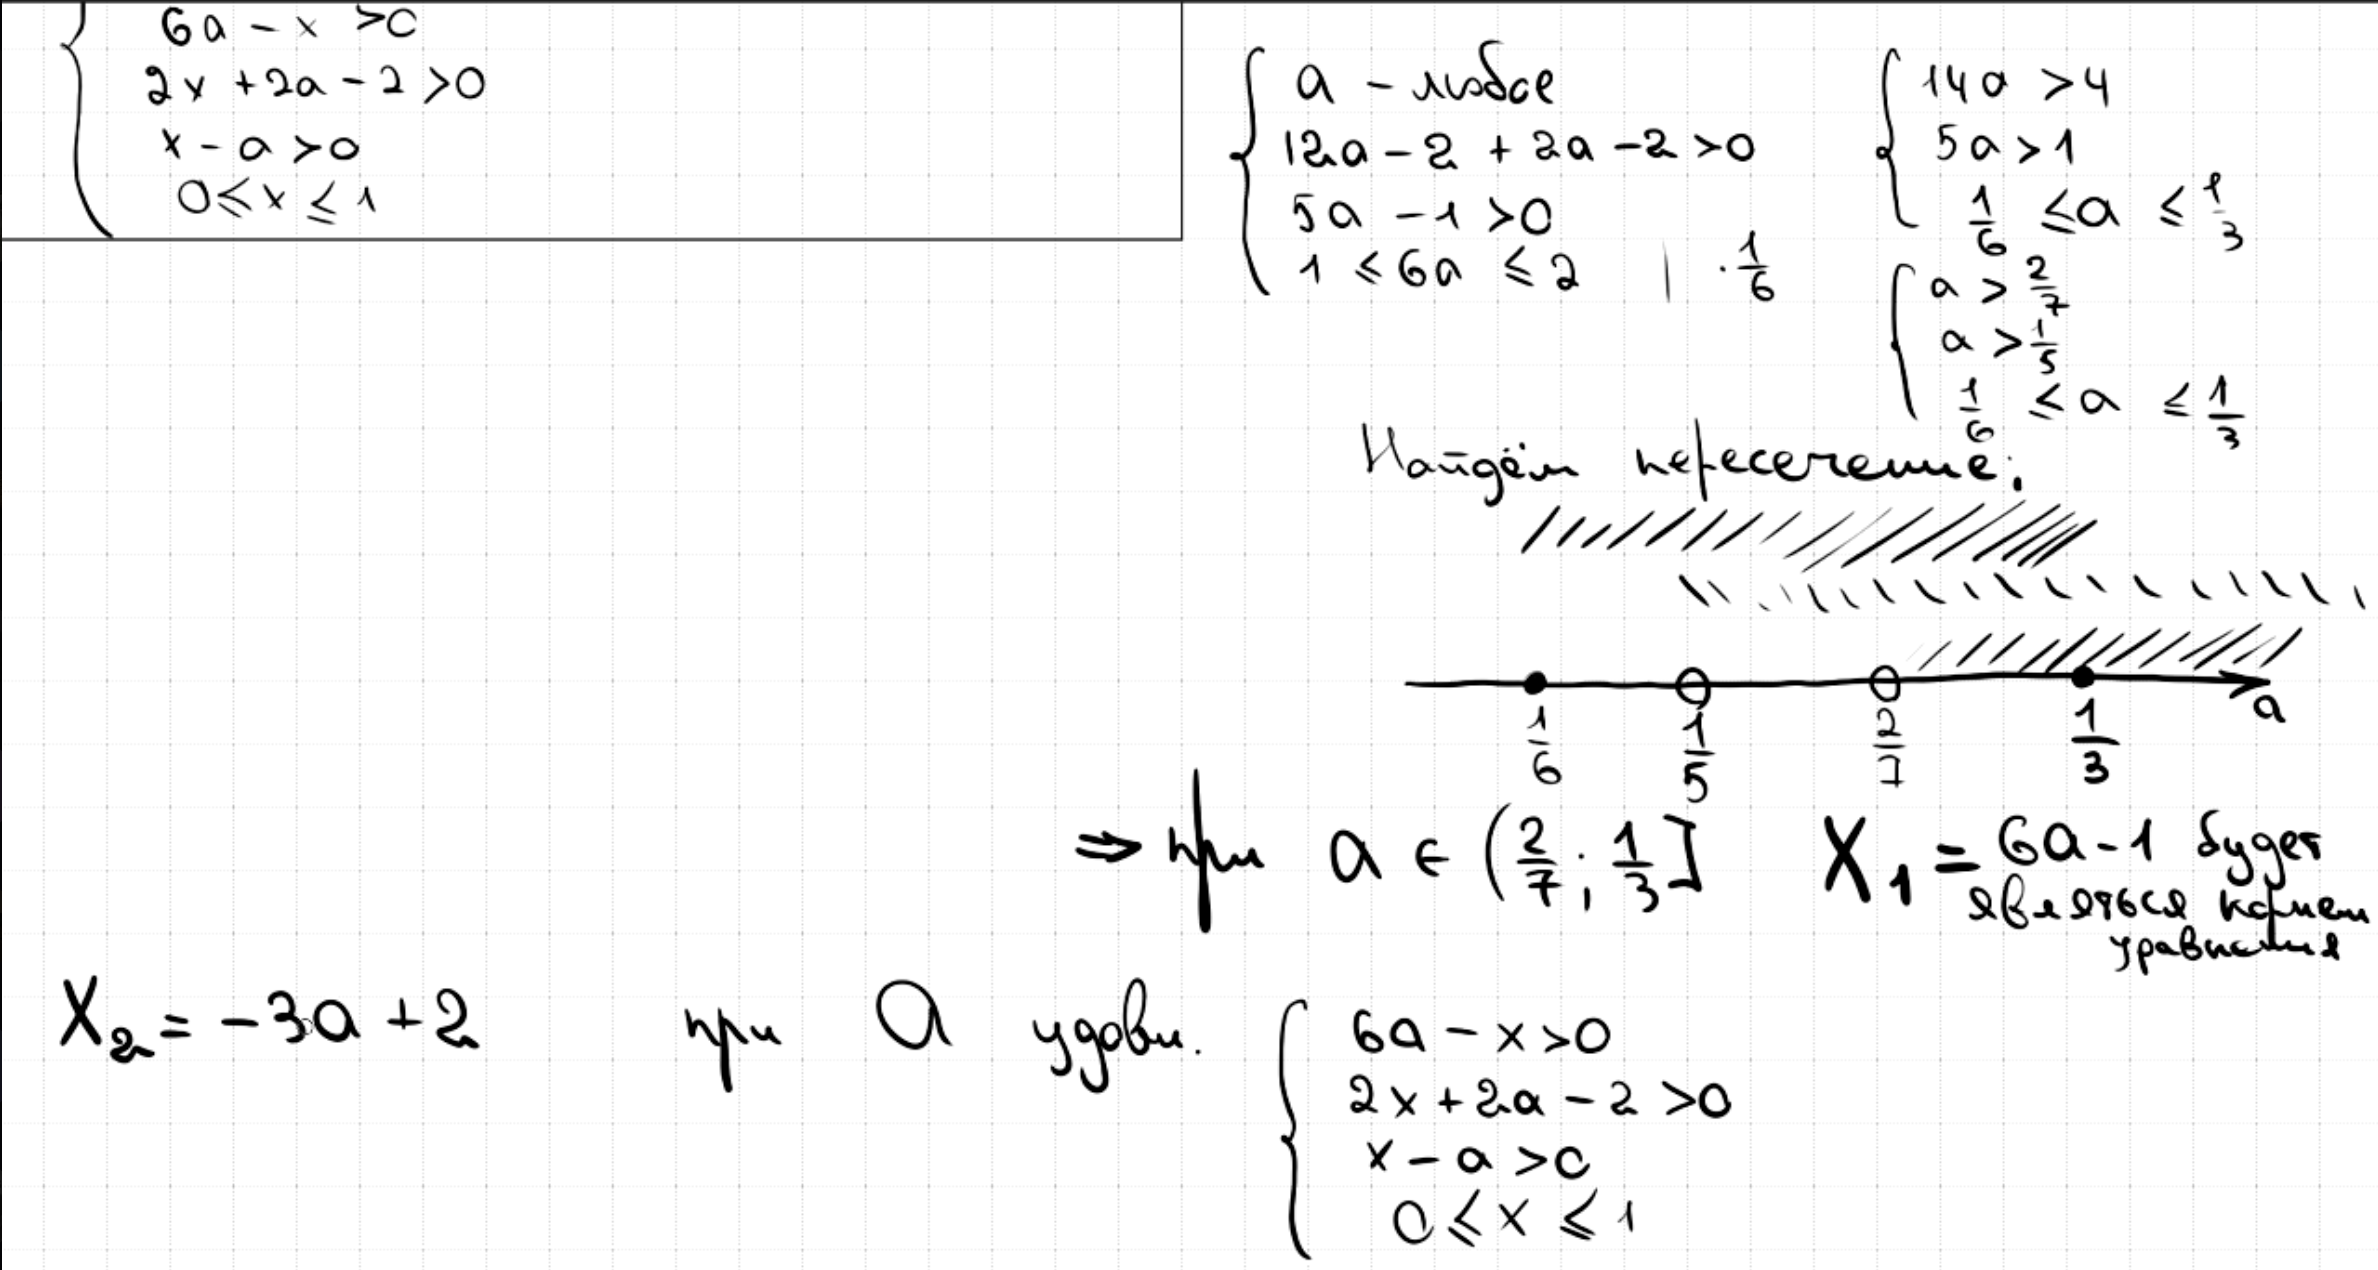 6a - x > 0
2x + 2a - 2 > 0
x - a > 0
0 ≤ x ≤ 1
a - любое
12a - 2 + 2a - 2 > 0
5a - 1 > 0
1 ≤ 6a ≤ 2 | · 1/6
14a > 4
5a > 1
1/6 ≤ a ≤ 1/3
a > 2/7
a > 1/5
1/6 ≤ a ≤ 1/3
Найдём пересечение:
1/6 1/5 2/7 1/3 a
⇒ при a ∈ (2/7; 1/3] X₁ = 6a - 1 будет
являться корнем
уравнения
X₂ = -3a + 2 при a удовл.
6a - x > 0
2x + 2a - 2 > 0
x - a > 0
0 ≤ x ≤ 1